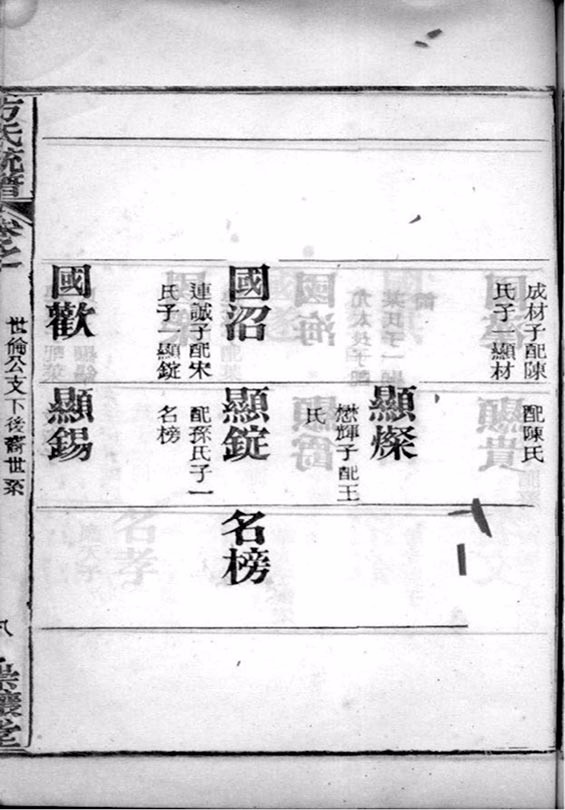 成材子配陳
氏子一顯材
配陳氏
顯燦
懋輝子配王
氏
國沼
連誠子配宋
氏子一顯錠
顯錠
配孫氏子一
名榜
名榜
國歡
顯錫
方氏統譜
卷之一
世倫公支下後裔世系
八